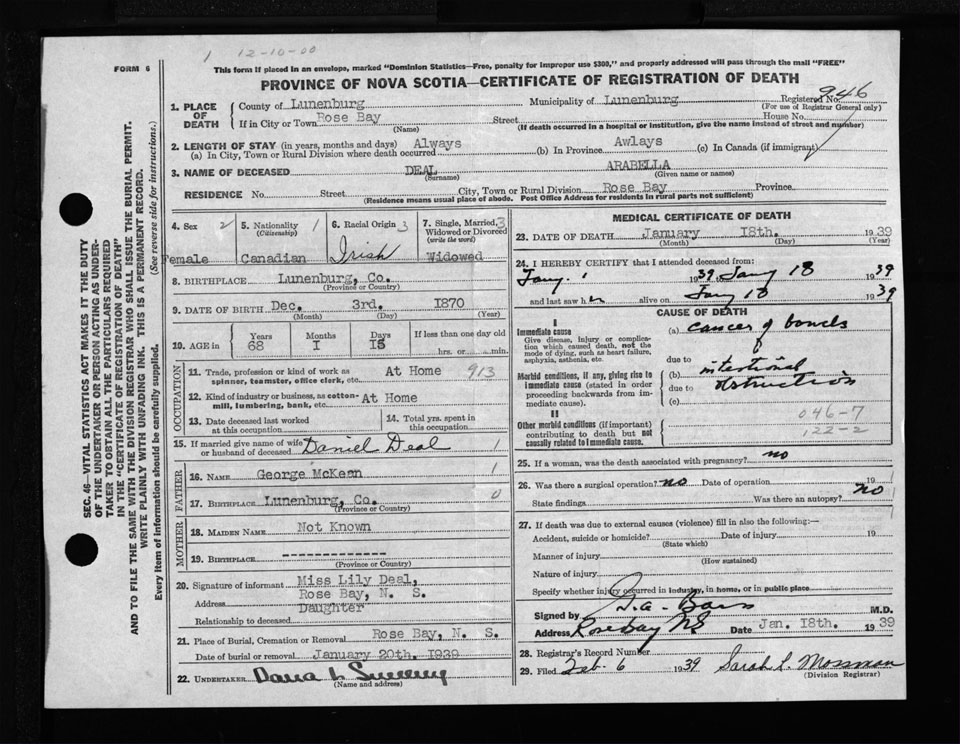 1 12-10-00
FORM 6
This form if placed in an envelope, marked "Dominion Statistics—Free, penalty for improper use $300," and properly addressed will pass through the mail "FREE"
PROVINCE OF NOVA SCOTIA—CERTIFICATE OF REGISTRATION OF DEATH
SEC. 46—VITAL STATISTICS ACT MAKES IT THE DUTY
OF THE UNDERTAKER OR PERSON ACTING AS UNDER-
TAKER TO OBTAIN ALL THE PARTICULARS REQUIRED
IN THE "CERTIFICATE OF REGISTRATION OF DEATH"
AND TO FILE THE SAME WITH THE DIVISION REGISTRAR WHO SHALL ISSUE THE BURIAL PERMIT.
WRITE PLAINLY WITH UNFADING INK. THIS IS A PERMANENT RECORD.
Every item of information should be carefully supplied. (See reverse side for instructions.)
1. PLACE OF DEATH County of Lunenburg Municipality of Lunenburg Registered No. 946
(For use of Registrar General only)
If in City or Town Rose Bay Street House No.
(Name) (If death occurred in a hospital or institution, give the name instead of street and number)
2. LENGTH OF STAY (in years, months and days) Always Awlays
(a) In City, Town or Rural Division where death occurred (b) In Province (c) In Canada (if immigrant)
3. NAME OF DECEASED DEAL ARABELLA
(Surname) (Given name or names)
RESIDENCE No. Street City, Town or Rural Division Rose Bay Province
(Residence means usual place of abode. Post Office Address for residents in rural parts not sufficient)
4. Sex 2 5. Nationality 1 (Citizenship) 6. Racial Origin 3 7. Single, Married, 3 Widowed or Divorced (write the word)
Female Canadian Irish Widowed
8. BIRTHPLACE Lunenburg, Co.
(Province or Country)
9. DATE OF BIRTH Dec. 3rd. 1870
(Month) (Day) (Year)
10. AGE in Years 68 Months I Days I5 If less than one day old hrs. or min.
OCCUPATION
11. Trade, profession or kind of work as spinner, teamster, office clerk, etc. At Home 913
12. Kind of industry or business, as cotton-mill, lumbering, bank, etc. At Home
13. Date deceased last worked at this occupation 14. Total yrs. spent in this occupation
15. If married give name of wife or husband of deceased Daniel Deal 1
FATHER
16. NAME George McKeen 1
17. BIRTHPLACE Lunenburg, Co. 0
(Province or Country)
MOTHER
18. MAIDEN NAME Not Known
19. BIRTHPLACE --------------
(Province or Country)
20. Signature of informant Miss Lily Deal,
Address Rose Bay, N. S.
Relationship to deceased Daughter
21. Place of Burial, Cremation or Removal Rose Bay, N. S.
Date of burial or removal January 20th. 1939
22. UNDERTAKER Dana L
(Name and address)
MEDICAL CERTIFICATE OF DEATH
23. DATE OF DEATH January I8th. 1939
(Month) (Day) (Year)
24. I HEREBY CERTIFY that I attended deceased from:
Jany. 1 1939, Jany 18 1939
and last saw her alive on Jany 18 1939
CAUSE OF DEATH
I
Immediate cause
Give disease, injury or complication which caused death, not the mode of dying, such as heart failure, asphyxia, asthenia, etc.
(a) cancer of bowels
due to
Morbid conditions, if any, giving rise to immediate cause (stated in order proceeding backwards from immediate cause).
(b) intestional
due to obstruction
(c)
II
Other morbid conditions (if important) contributing to death but not causally related to immediate cause.
046-7
122-2
25. If a woman, was the death associated with pregnancy? no
26. Was there a surgical operation? no Date of operation 19
State findings Was there an autopsy? no
27. If death was due to external causes (violence) fill in also the following:—
Accident, suicide or homicide? Date of injury 19
(State which)
Manner of injury
(How sustained)
Nature of injury
Specify whether injury occurred in industry, in home, or in public place
Signed by M.D.
Address Rosebay NS Date Jan. I8th. 1939
28. Registrar's Record Number
29. Filed Feb. 6 1939 Sarah L. Mossman
(Division Registrar)